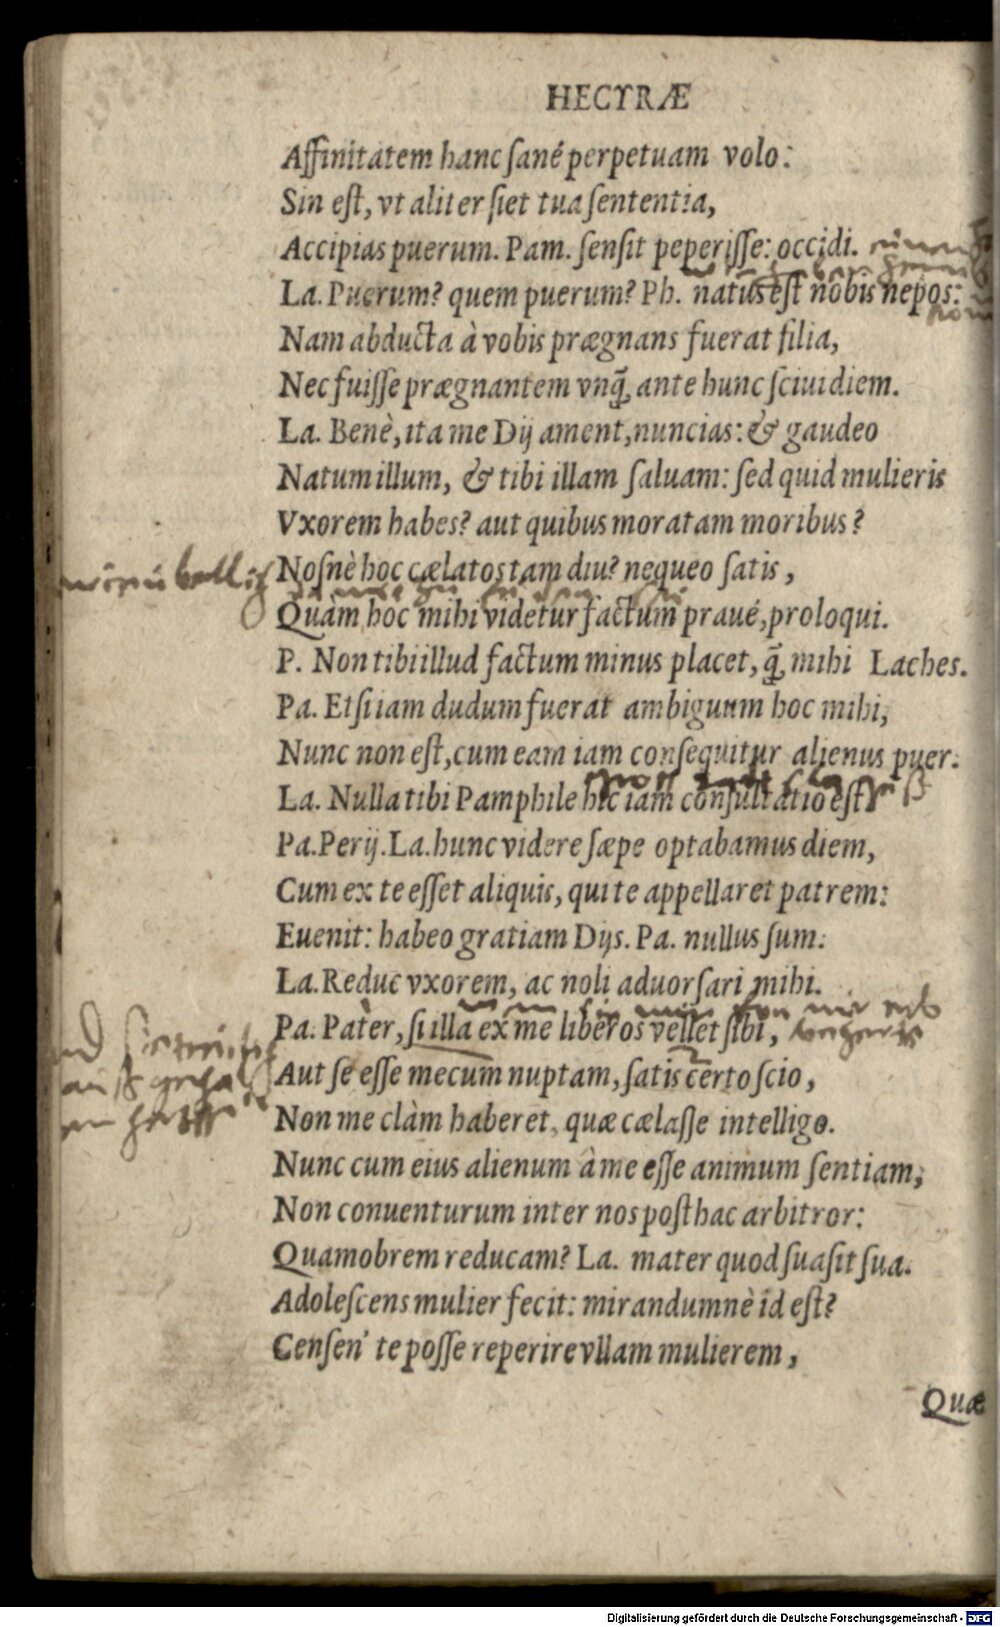 HECYRÆ
Affinitatem hanc sané perpetuam volo:
Sin est, vt aliter siet tua sententia,
Accipias puerum. Pam. sensit peperisse: occidi.
La. Puerum? quem puerum? Ph. natus est nobis nepos:
Nam abducta à vobis prægnans fuerat filia,
Nec fuisse prægnantem vnq̃ ante hunc sciui diem.
La. Benè, ita me Dij ament, nuncias: & gaudeo
Natum illum, & tibi illam saluam: sed quid mulieris
Vxorem habes? aut quibus moratam moribus?
Nosnè hoc cælatos tam diu? nequeo satis,
Quàm hoc mihi videtur factum praué, proloqui.
P. Non tibi illud factum minus placet, q̃ mihi Laches.
Pa. Etsi iam dudum fuerat ambiguum hoc mihi,
Nunc non est, cum eam iam consequitur alienus puer.
La. Nulla tibi Pamphile hic iam consultatio est
Pa. Perij. La. hunc videre sæpe optabamus diem,
Cum ex te esset aliquis, qui te appellaret patrem:
Euenit: habeo gratiam Dijs. Pa. nullus sum.
La. Reduc vxorem, ac noli aduorsari mihi.
Pa. Pater, si illa ex me liberos vellet sibi,
Aut se esse mecum nuptam, satis certo scio,
Non me clàm haberet, quæ cælasse intelligo.
Nunc cum eius alienum à me esse animum sentiam,
Non conuenturum inter nos posthac arbitror:
Quamobrem reducam? La. mater quod suasit sua.
Adolescens mulier fecit: mirandumnè id est?
Censen' te posse reperire vllam mulierem,
Quæ
Digitalisierung gefördert durch die Deutsche Forschungsgemeinschaft - DFG